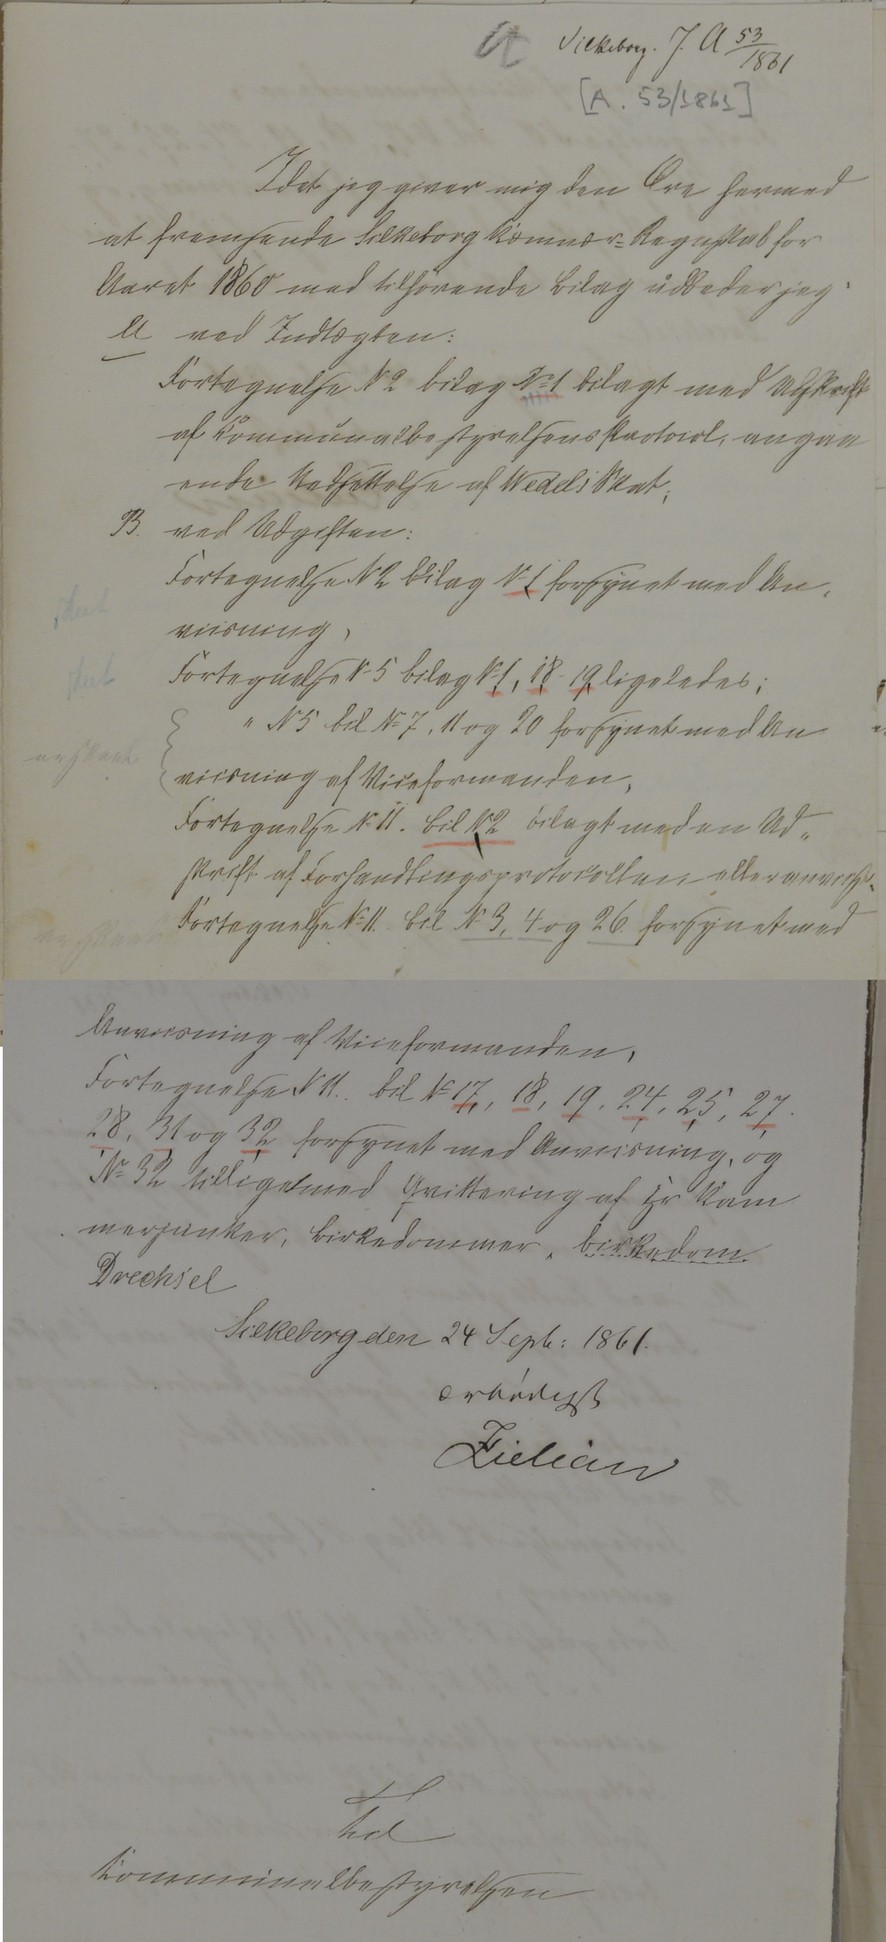 Silkeborg. J. A 53/1861
[A. 53/1861]
Idet jeg giver mig den Ære hermed
at fremsende Silkeborg Kæmner=Regnskab for
Aaret 1860 med tilhørende Bilag udbeder jeg
A ved Indtægten:
Fortegnelse N 2 bilag No 1 bilagt med Afskrift
af Communalbestyrelsens Protocol, angaa
ende Nedsættelse af Wedels Skat;
B. ved Udgiften:
Fortegnelse N 2 bilag No 1 forsynet med An,
viisning,
Fortegnelse No 5 bilag No 1, 18 19 ligeledes;
" N 5 bil No 7, 11 og 20 forsynet med An
viisning af Viceformanden,
Fortegnelse No 11. bil No 2 bilagt med en Ud„
skrift af Forhandlingsprotocollen eller
Fortegnelse No 11. bil No 3, 4 og 26 forsynet med
Anviisning af Viceformanden,
Fortegnelse N 11. bil No 17, 18, 19, 24, 25, 27.
28, 31 og 32 forsynet med Anviisning, og
No 32 tilligemed Qvittering af Hr Kam
merjunker, birkedommer, birkedom
Drechsel
Silkeborg den 24 Sept: 1861.
ærbødigst
Zielian
Til
Kommunalbestyrelsen